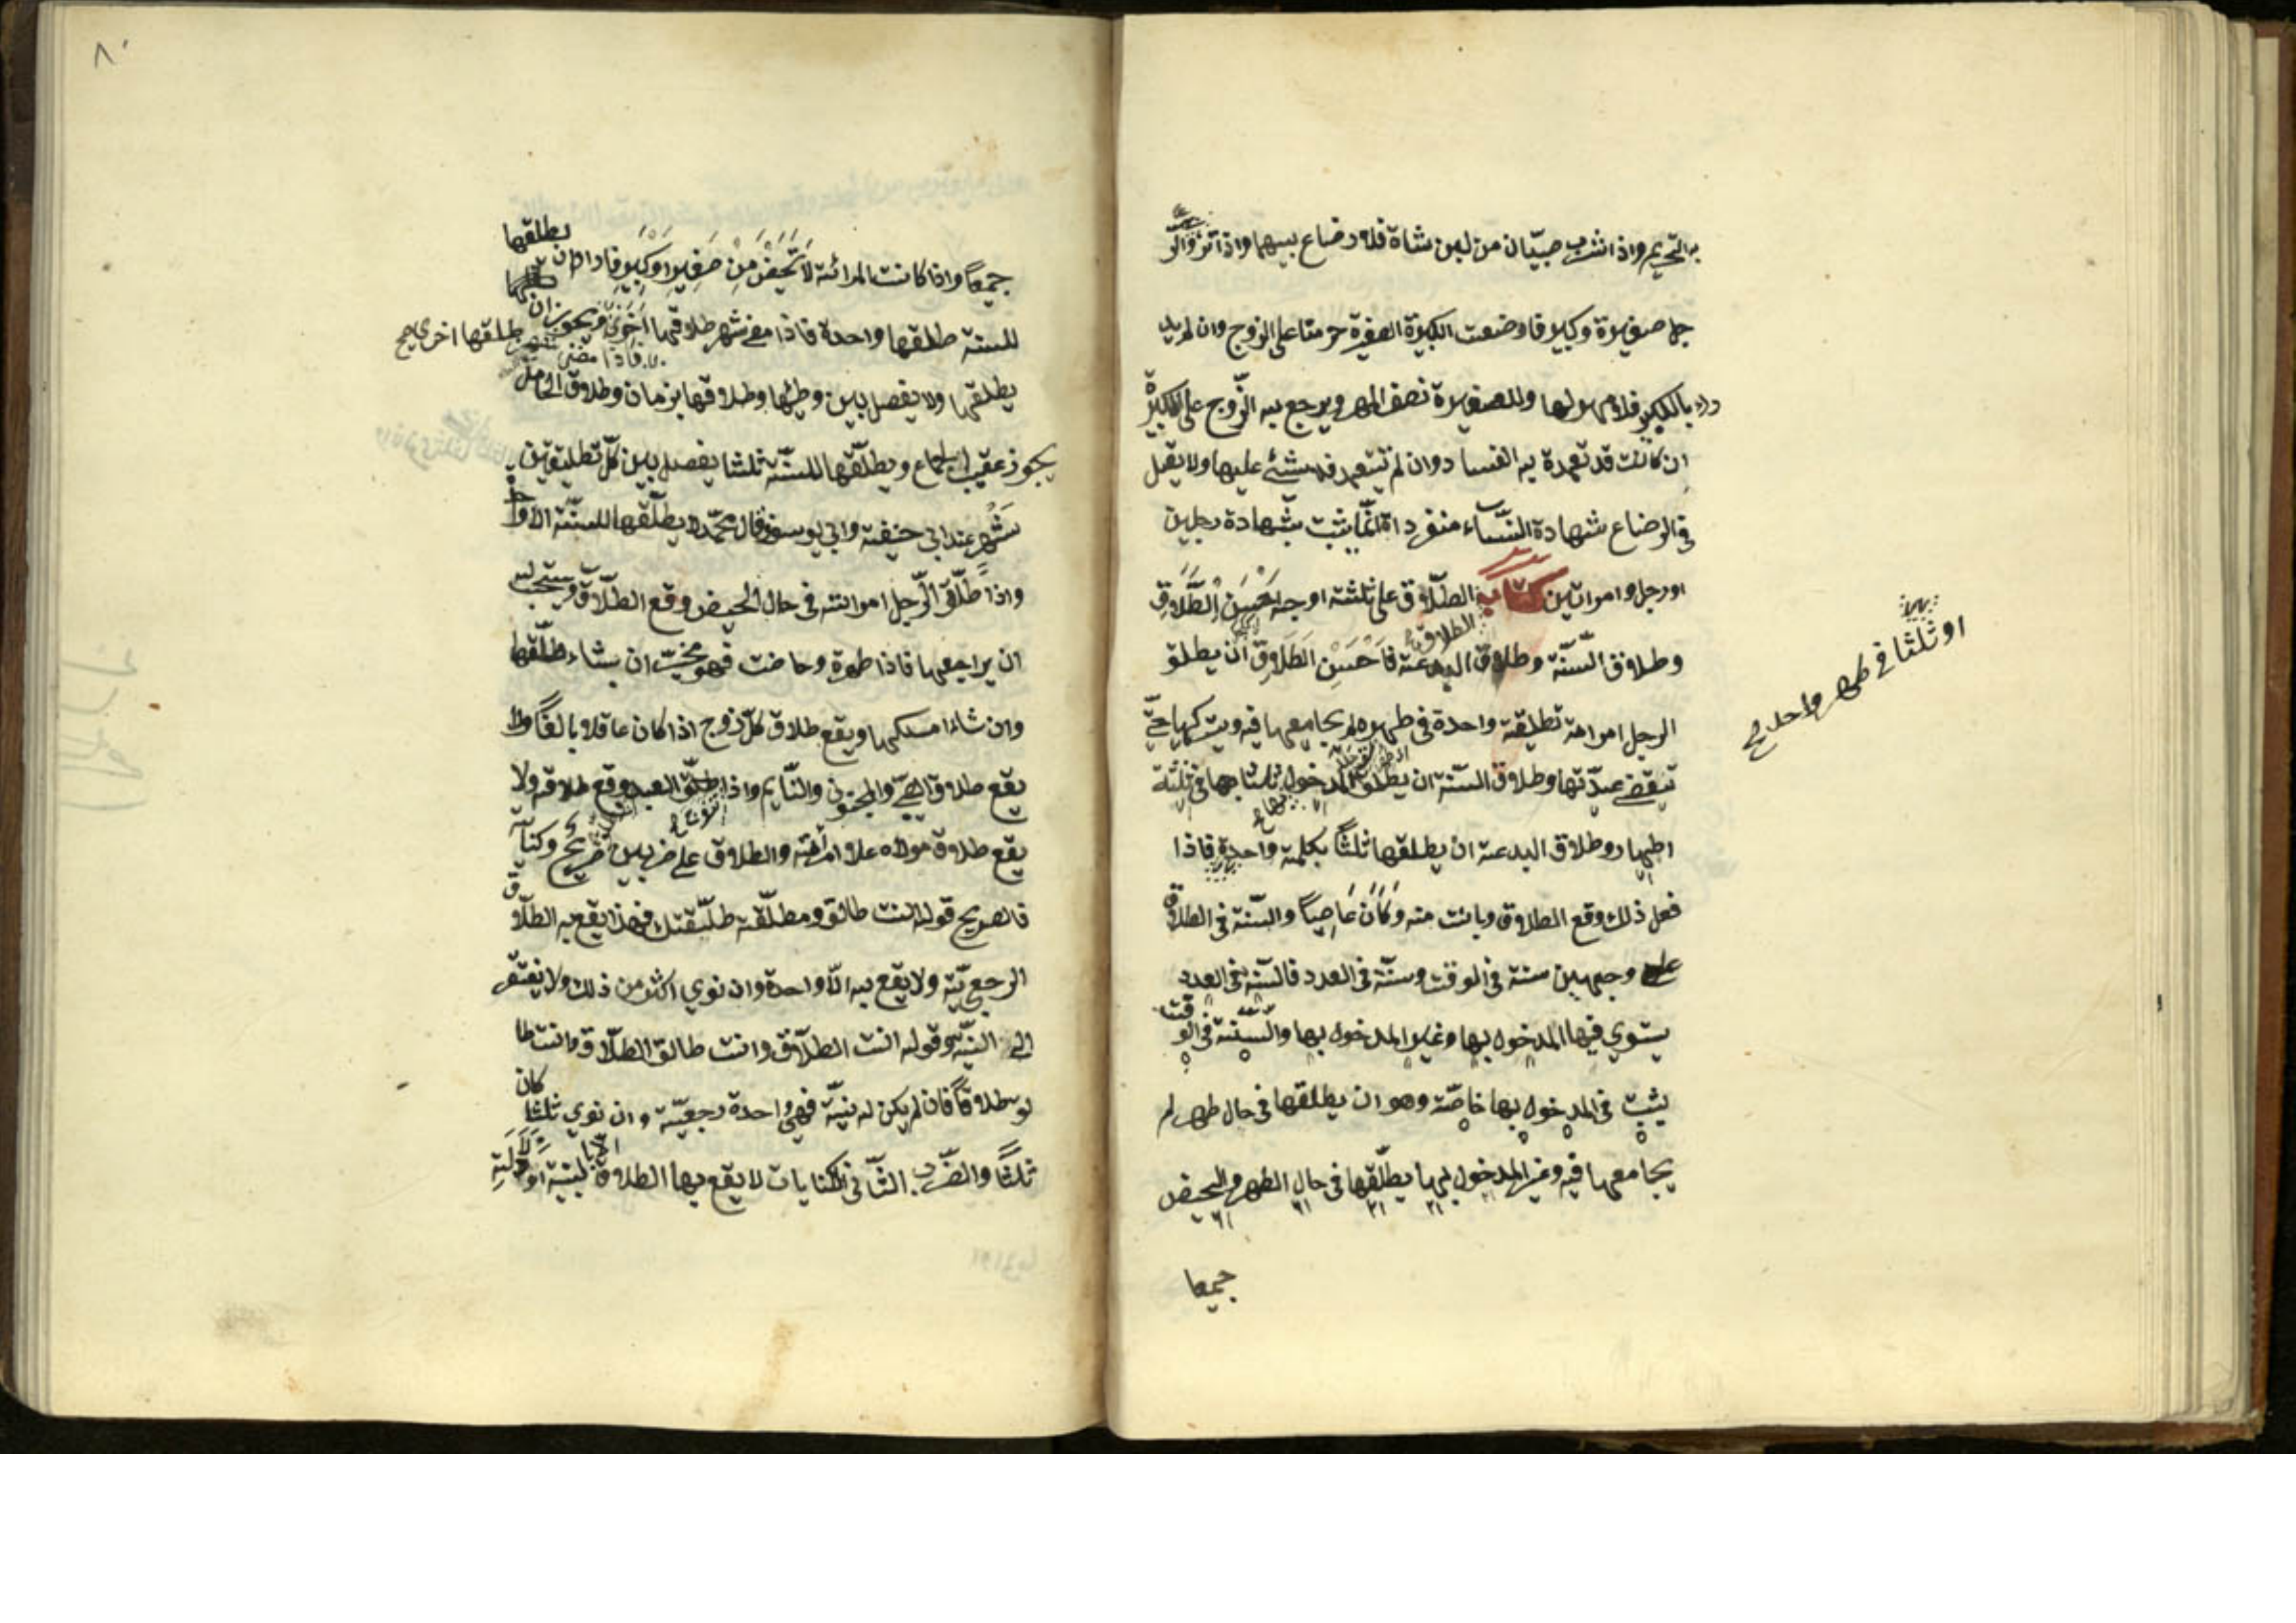 به التحريم واذا شرب صبيّان من لبن شاة فلا رضاع بينهما واذا تزوّج الر
جل صغيرة وكبيرة فارضعت الكبيرة الصغيرة حرمتا على الزوج وان لم يد
بالكبيرة فلا مهر لها وللصغيرة نصف المهر ويرجع به الزّوج على الكبيرة
ان كانت قد تعمدة به الفساد وان لم تتعمد فلا شئ عليها ولا يقبل
في الرضاع شهادة النّسآء منفردات انّما يثبت بشهادة رجلين
او رجل وامراتين كتاب الطّلاق على ثلثة اوجه احسن الطّلاق
وطلاق السّنّة وطلاق البدعة فاحسن الطّلاق ان يطلق
الطلاق
الرجل امراته تطليقة واحدة في طهر لم يجامعها فيه ويتركها حتّي
تنقضي عدّتها وطلاق السّنة ان يطلق المدخول بها ثلثا في ثلثة
اطهار وطلاق البدعة ان يطلقها ثلثًا بكلمة واحدة فاذا
او ثلثا في طهر واحد صح
فعل ذلك وقع الطلاق وبانت منه وكان عاصيًا والسّنة في الطلاق
على وجهين سنة في الوقت وسنّة في العدد فالسّنة في العدد
يستوي فيها المدخول بها وغير المدخول بها والسّنة في الوقت
يثبت في المدخول بها خاصّة وهو ان يطلقها في حال طهر لم
يجامعها فيه وغير المدخول بها يطلّقها في حال الطهر والحيض
جميعا
٨٠
جميعًا واذا كانت المرائة لا تحيض من صغير او كبير فاراد ان يطلقها
للسنة طلقها واحدة فاذا مضي شهر طلاقها اخري ويجوز ان
فاذا مضى شهر طلقها اخرى صح
يطلقها ولا يفصل بين وطئها وطلاقها بزمان وطلاق الحامل
يجوز عقيب الجماع ويطلّقها للسنّة ثلثا يفصل بين كلّ تطليقتين
بشهر عند ابي حنيفة وابي يوسف وقال محمّد لا يطلّقها للسنّة الا واحدة
واذا طلّق الرّجل امراته في حال الحيض وقع الطّلاق ويستحب له
ان يراجعها فاذا طهرة وحاضت فهو مخيّر ان شاء طلّقها
وان شاء امسكها ويقع طلاق كلّ زوج اذا كان عاقلا بالغًا ولا
يقع طلاق الصّبي والمجنون والنّايم واذا طلّق العبد وقع طلاقه ولا
يقع طلاق مولاه على امراته والطلاق على ضربين صريح وكناية
فالصريح قوله انت طالق ومطلّقة طلّقتك فهذا يقع به الطلاق
الرجعيّة ولا يقع به الّا واحدة وان نوي اكثر من ذلك ولا يفتقر
الى النيّة وقوله انت الطلاق وانت طالق الطلاق وانت طا
لو طلاقًا فان لم يكن له نيّة فهي واحدة رجعيّة وان نوي ثلثا كان
ثلثًا والضّرب الثّاني الكنايات لا يقع بها الطلاق الّا بنيّة او دلالة